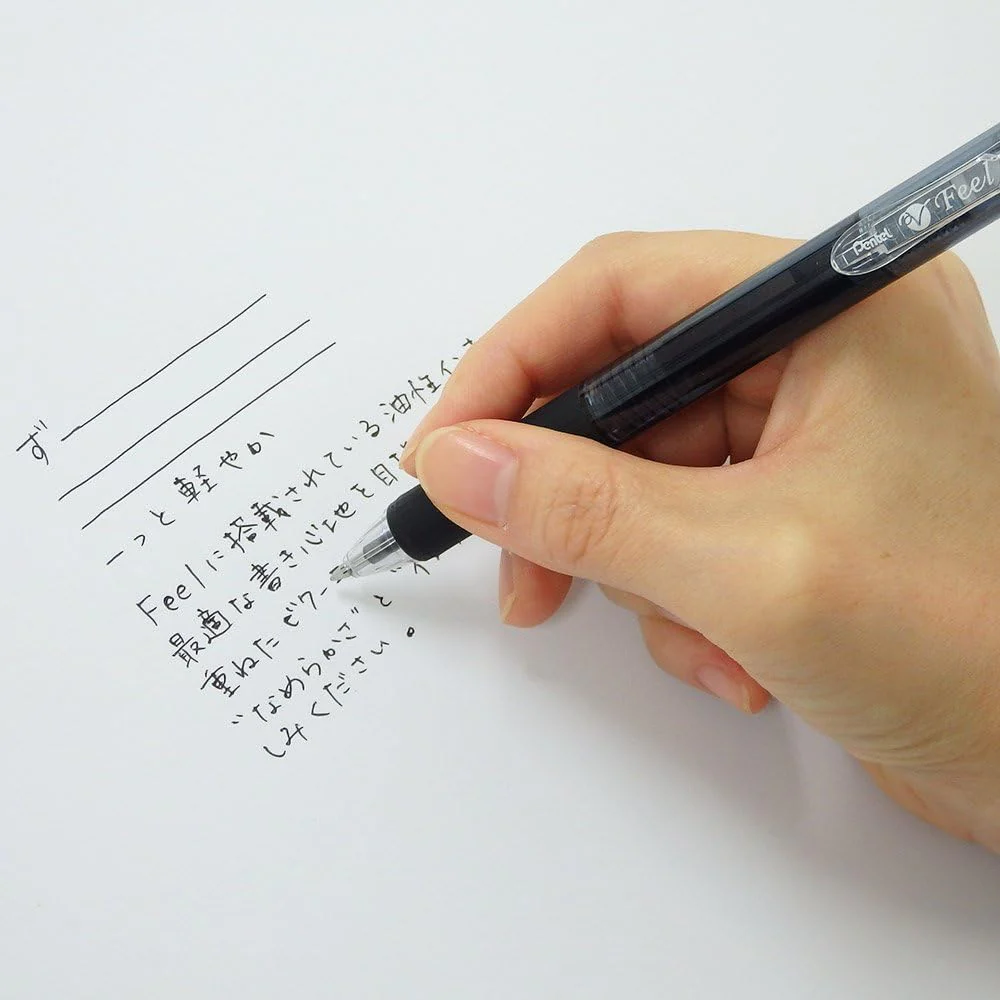 ず
ーっと軽やか
Feelに搭載されている油性イン
最適な書き心地を目
重ねたビク
"なめらかさ"と
しみください。
Pentel Feel